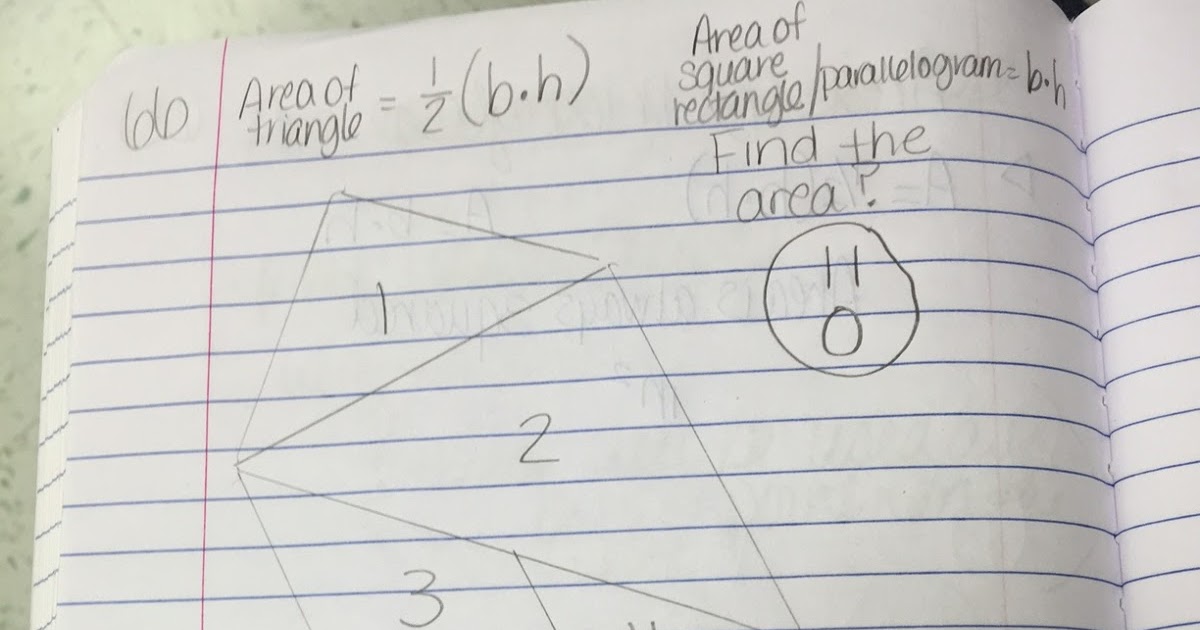 6b
Area of
triangle = 1/2 (b·h)
Area of
square
rectangle/parallelogram = b·h
Find the
area?
1
2
3